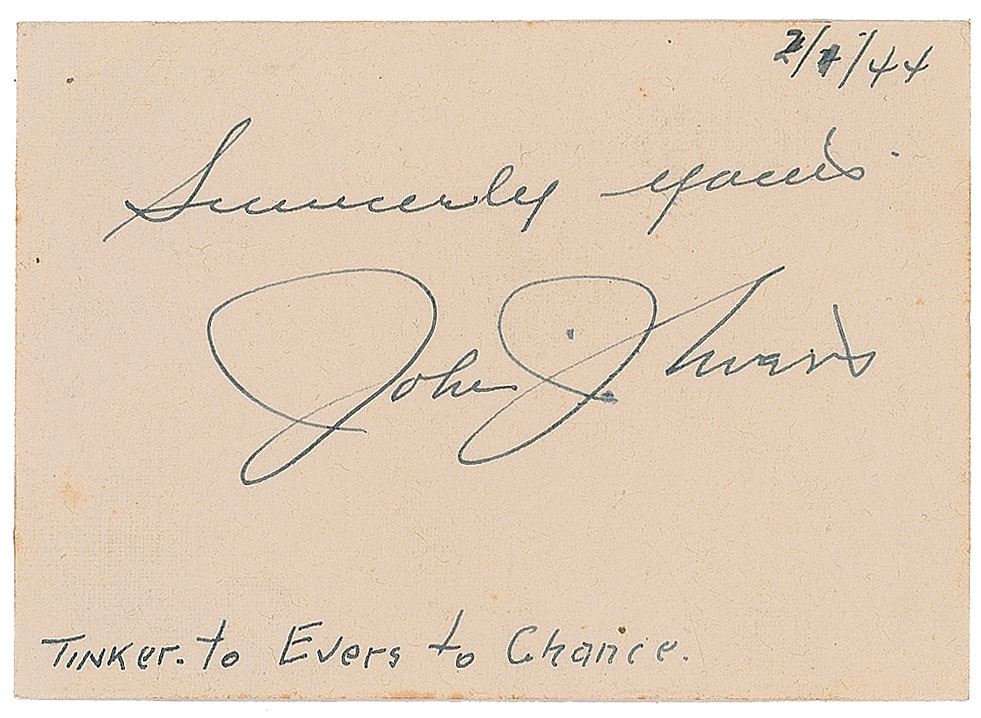 2/7/44
Sincerely yours
John J. Evers
Tinker. to Evers to Chance.